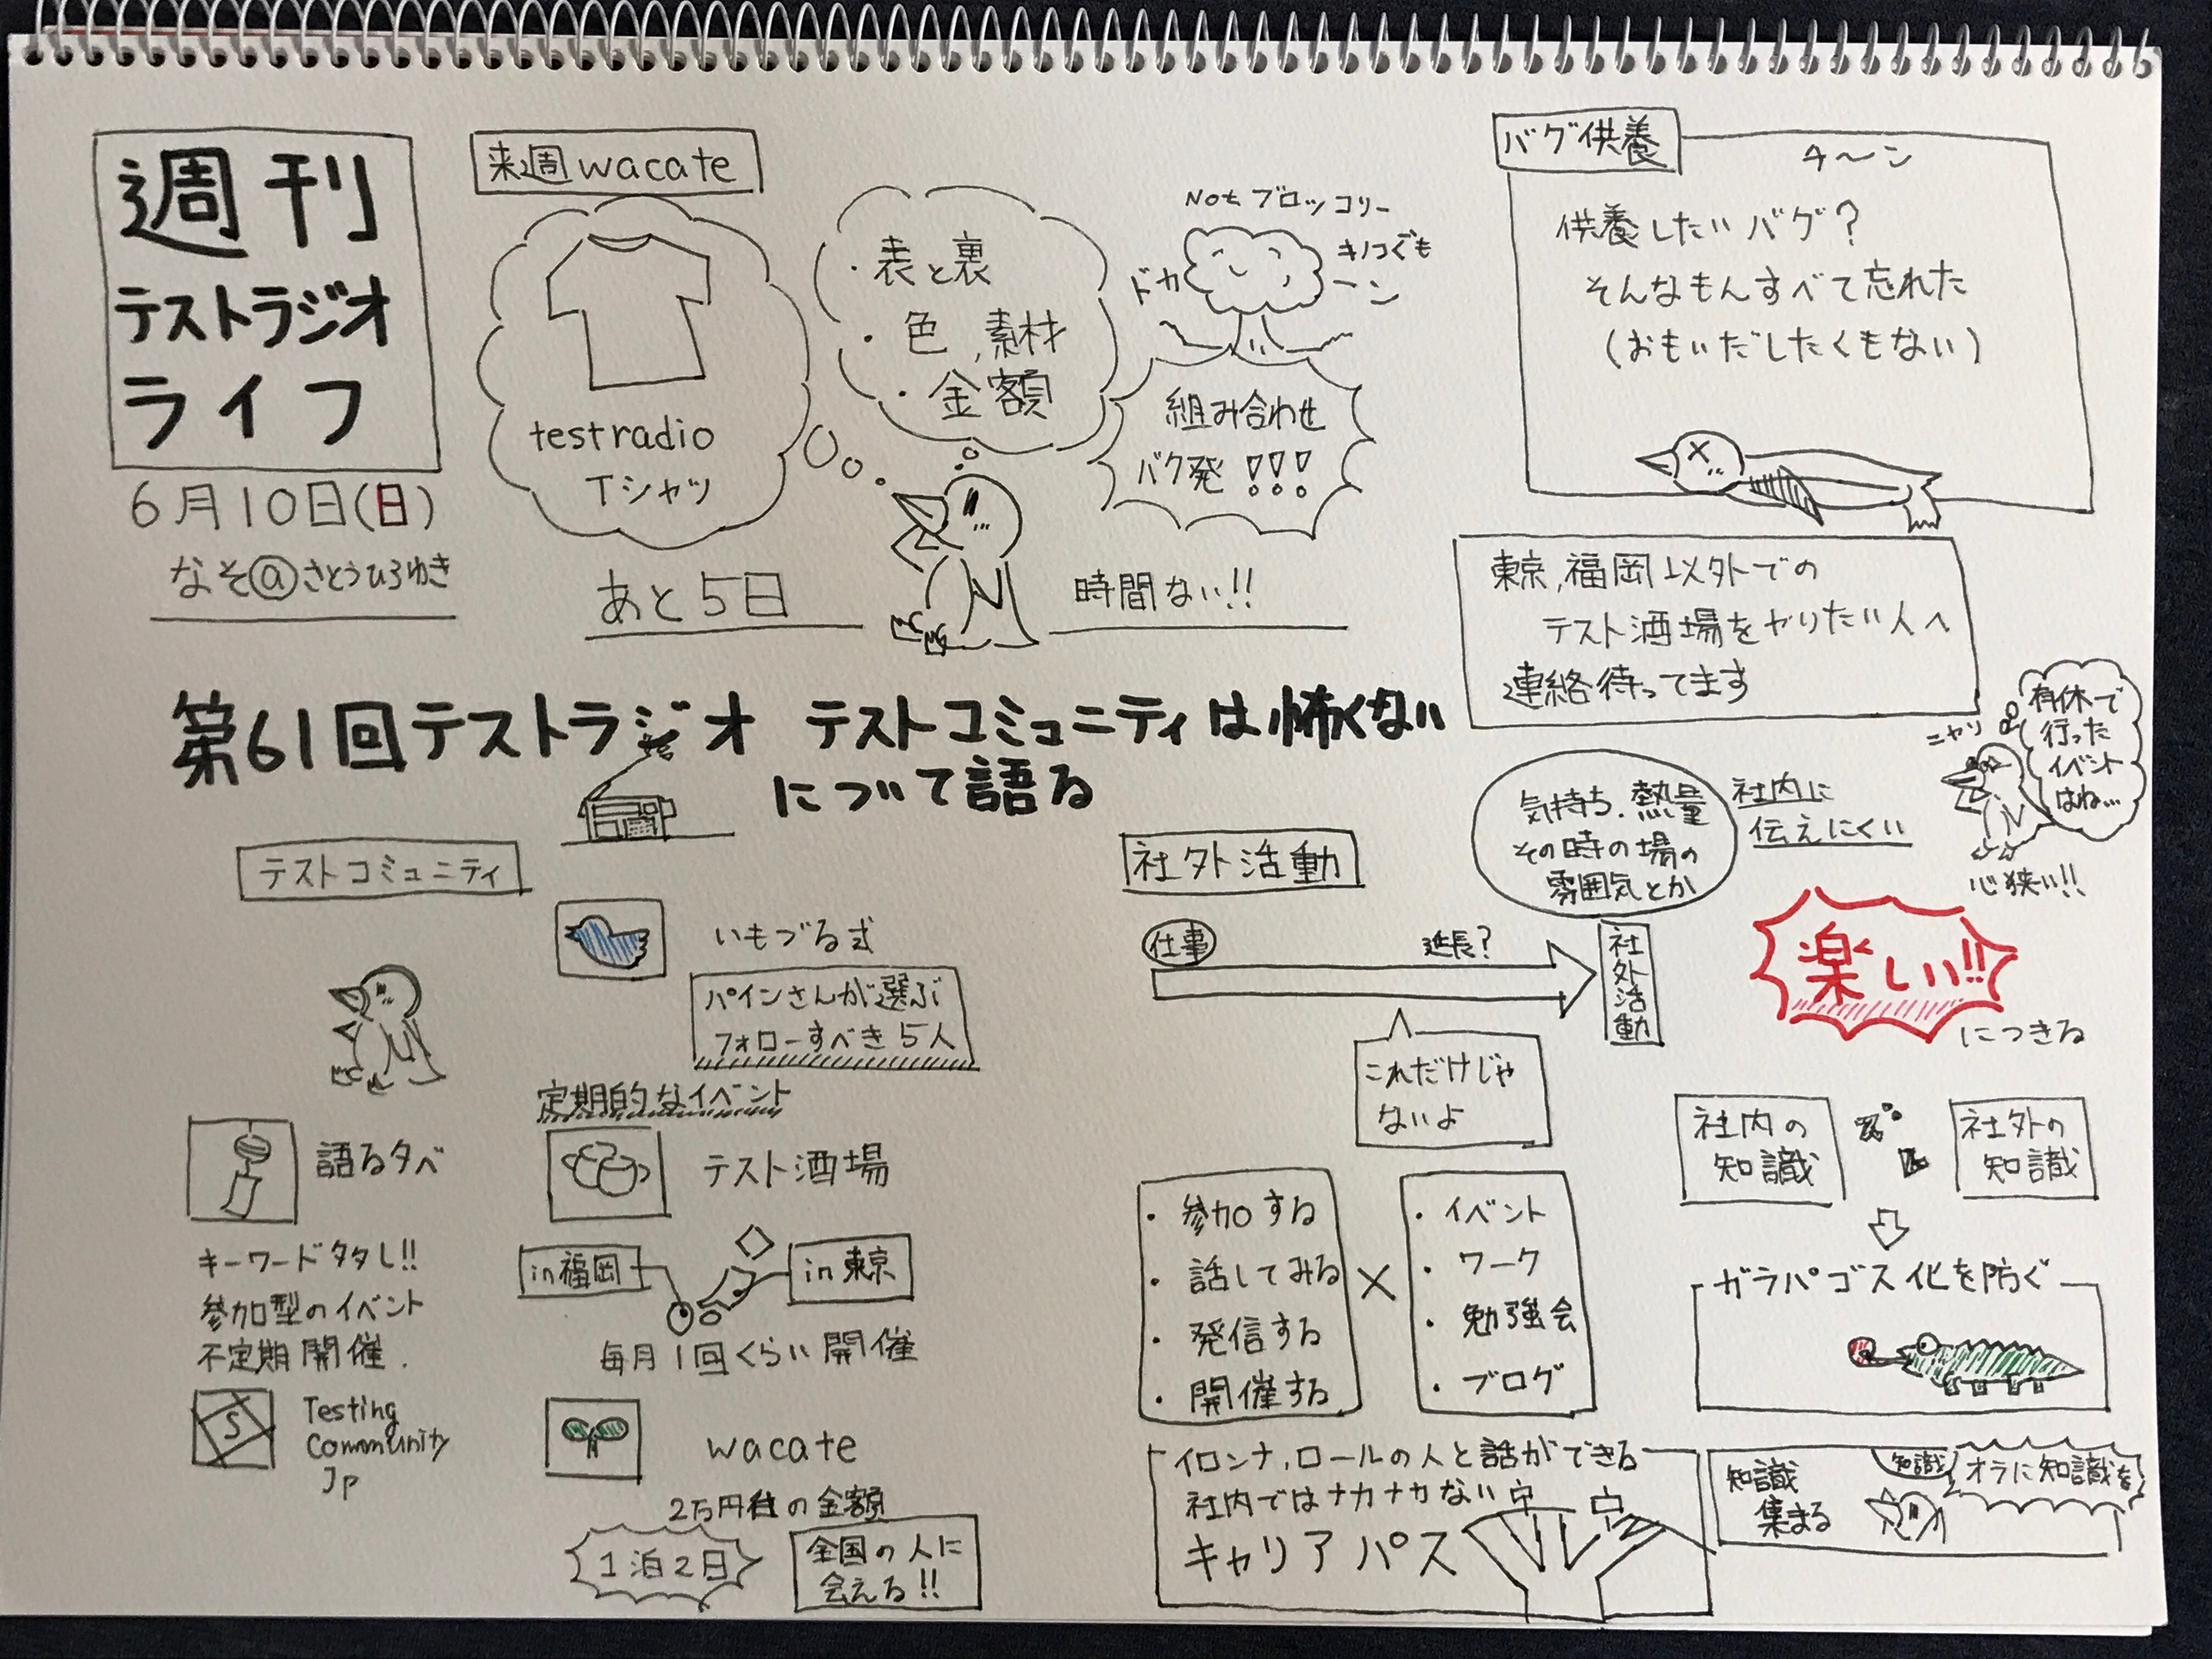 週刊
テストラジオ
ライフ
6月10日(日)
なそ@さとうひろゆき
来週wacate
testradio
Tシャツ
・表と裏
・色,素材
・金額
Notブロッコリー
キノコぐも
ドカ
ーン
組み合わせ
バク発!!!
あと5日
時間ない!!
バグ供養
チ〜ン
供養したいバグ?
そんなもんすべて忘れた
(おもいだしたくもない)
東京,福岡以外での
テスト酒場をやりたい人へ
連絡待ってます
第61回テストラジオ テストコミュニティは怖くない
について語る
テストコミュニティ
いもづる式
パインさんが選ぶ
フォローすべき5人
定期的なイベント
語る夕べ
キーワードタタし!!
参加型のイベント
不定期開催.
S
Testing
Community
Jp
テスト酒場
in福岡
in東京
毎月1回くらい開催
wacate
2万円強の金額
1泊2日
全国の人に
会える!!
社外活動
気持ち.熱量
その時の場の
雰囲気とか
社内に
伝えにくい
ニヤリ
有休で
行った
イベント
はね…
心狭い!!
仕事
延長?
社外活動
これだけじゃ
ないよ
楽しい!!
につきる
・参加する
・話してみる
・発信する
・開催する
×
・イベント
・ワーク
・勉強会
・ブログ
社内の
知識
社外の
知識
ガラパゴス化を防ぐ
イロンナ,ロールの人と話ができる
社内ではナカナカない
キャリアパス
知識
集まる
知識
オラに知識を